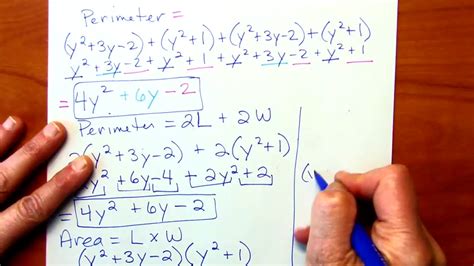 Perimeter =
(y²+3y-2)+(y²+1)+(y²+3y-2)+(y²+1)
y²+3y-2+y²+1+y²+3y-2+y²+1
= 4y²+6y-2
Perimeter = 2L + 2W
2(y²+3y-2) + 2(y²+1)
y²+6y-4+2y²+2
= 4y²+6y-2
Area = L x W
(y²+3y-2)(y²+1)
(